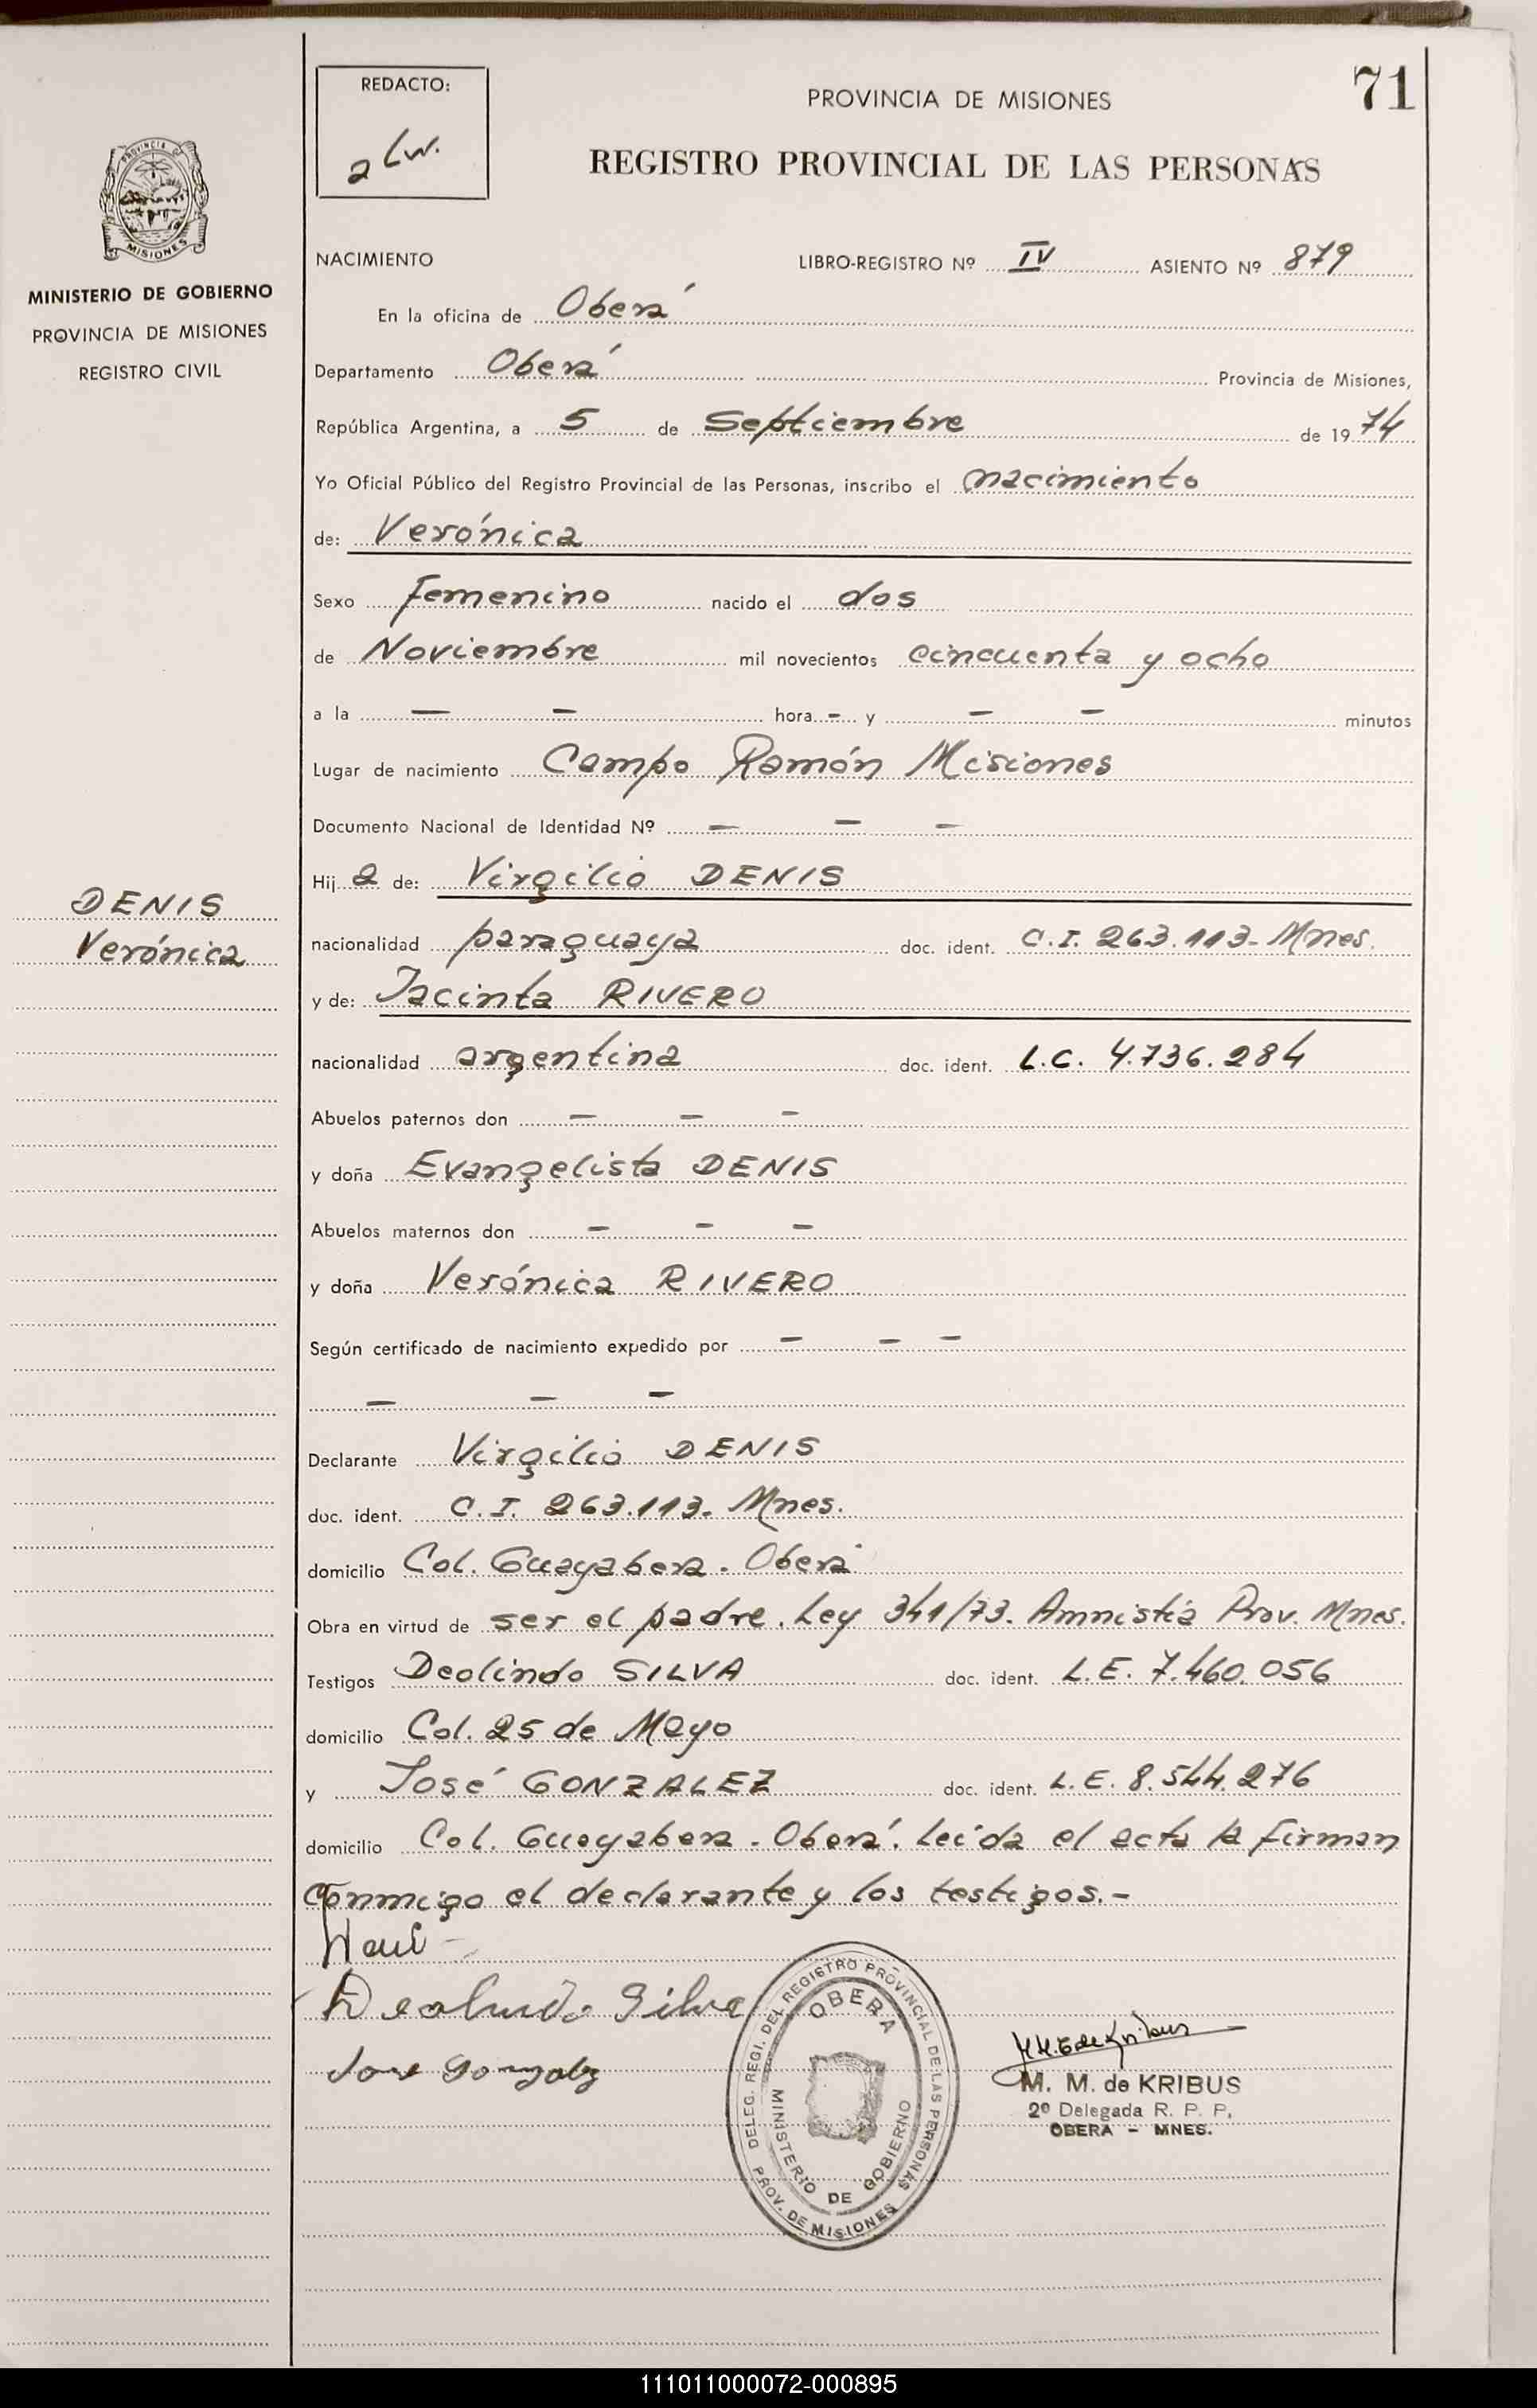 71
REDACTO:
PROVINCIA DE MISIONES
REGISTRO PROVINCIAL DE LAS PERSONAS
PROVINCIA DE
MISIONES
MINISTERIO DE GOBIERNO
PROVINCIA DE MISIONES
REGISTRO CIVIL
NACIMIENTO LIBRO-REGISTRO Nº IV ASIENTO Nº 879
En la oficina de Oberá
Departamento Oberá Provincia de Misiones,
República Argentina, a 5 de Septiembre de 1974
Yo Oficial Público del Registro Provincial de las Personas, inscribo el nacimiento
de: Verónica
Sexo Femenino nacido el dos
de Noviembre mil novecientos cincuenta y ocho
a la — — hora - y — — minutos
Lugar de nacimiento Campo Ramón Misiones
Documento Nacional de Identidad Nº — — —
Hija de: Virgilio DENIS
DENIS
Verónica
nacionalidad paraguaya doc. ident. C.I. 263.113- Mnes.
y de: Jacinta RIVERO
nacionalidad argentina doc. ident. L.C. 4.736.284
Abuelos paternos don — — —
y doña Evangelista DENIS
Abuelos maternos don — — —
y doña Verónica RIVERO
Según certificado de nacimiento expedido por — — —
— — —
Declarante Virgilio DENIS
doc. ident. C.I. 263.113. Mnes.
domicilio Col. Guayabera. Oberá
Obra en virtud de ser el padre. Ley 341/73. Amnistía Prov. Mnes.
Testigos Deolindo SILVA doc. ident. L.E. 7.460.056
domicilio Col. 25 de Mayo
y José GONZALEZ doc. ident. L.E. 8.544.276
domicilio Col. Guayabera. Oberá. Leída el acta la firman
conmigo el declarante y los testigos.-
Deolindo Silva
Jose Gonzalez
DELEG. REGI. DEL REGISTRO PROVINCIAL DE LAS PERSONAS
OBERA
MINISTERIO DE GOBIERNO
PROV. DE MISIONES
M. M. de KRIBUS
2º Delegada R. P. P.
OBERA - MNES.
111011000072-000895